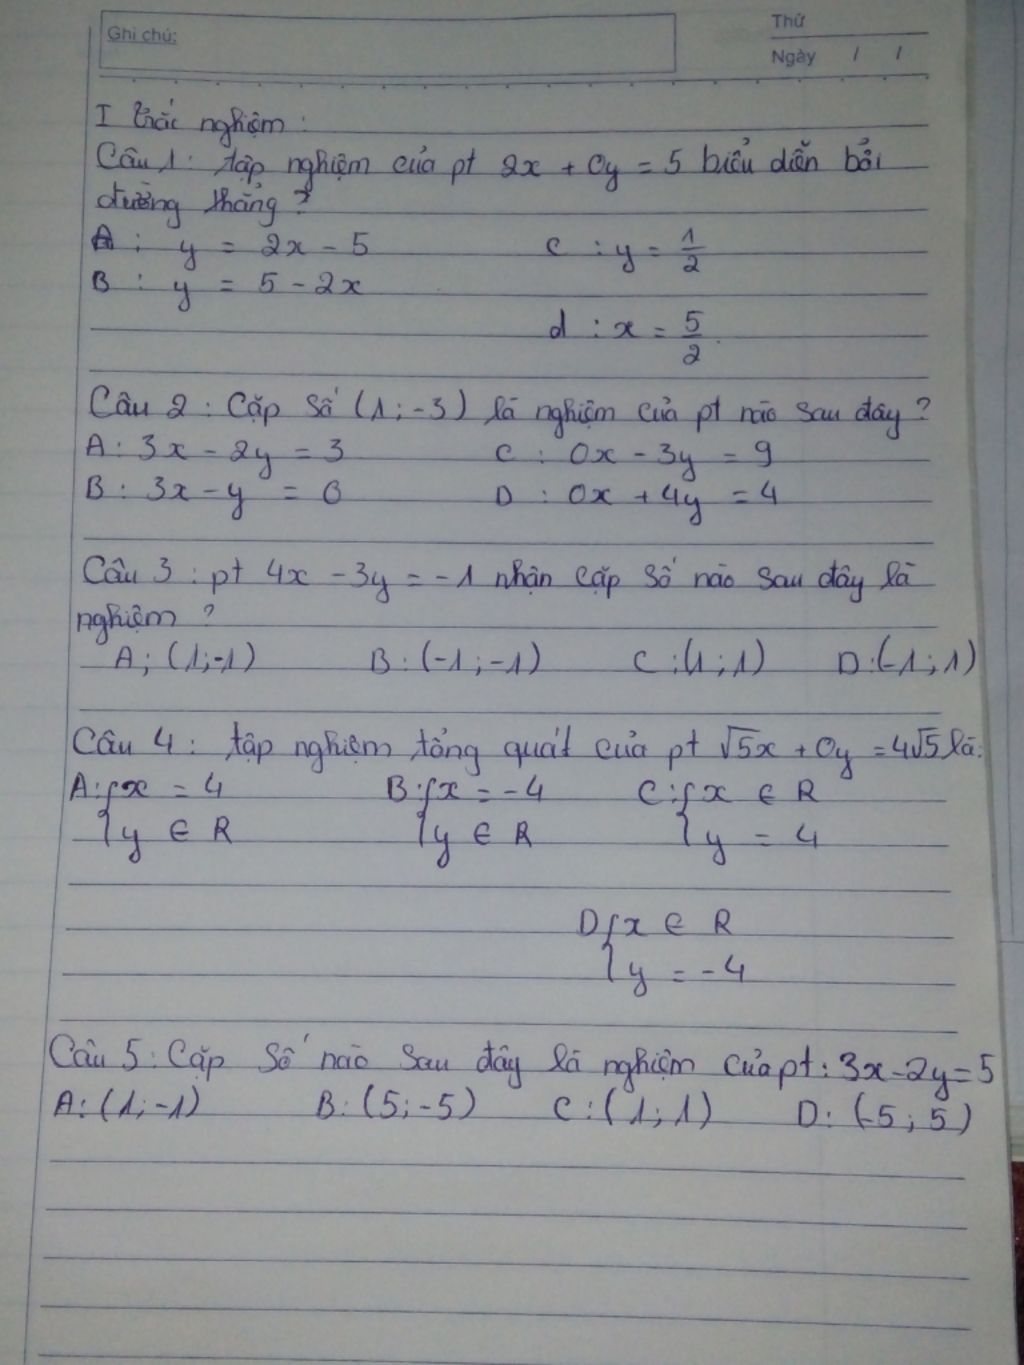 Ghi chú:
Thứ
Ngày / /
I trắc nghiệm:
Câu 1: tập nghiệm của pt 2x + 0y = 5 biểu diễn bởi
đường thẳng?
A: y = 2x - 5 C: y = 1/2
B: y = 5 - 2x
d: x = 5/2
Câu 2: Cặp số (1; -3) là nghiệm của pt nào sau đây?
A: 3x - 2y = 3 C: 0x - 3y = 9
B: 3x - y = 0 D: 0x + 4y = 4
Câu 3: pt 4x - 3y = -1 nhận cặp số nào sau đây là
nghiệm?
A; (1;-1) B: (-1; -1) C: (1; 1) D: (-1; 1)
Câu 4: tập nghiệm tổng quát của pt √5x + 0y = 4√5 là:
A: { x = 4 B: { x = -4 C: { x ∈ R
y ∈ R y ∈ R y = 4
D { x ∈ R
y = -4
Câu 5: Cặp số nào sau đây là nghiệm của pt: 3x - 2y = 5
A: (1; -1) B: (5; -5) C: (1; 1) D: (-5; 5)